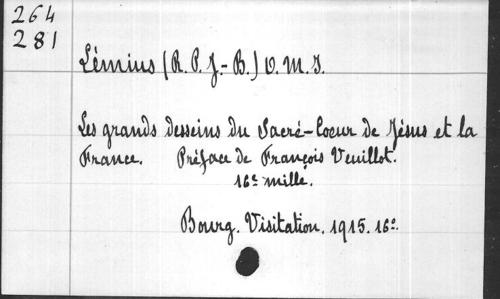 264
281
Lémius (R. P. J.-B.) O. M. I.
Les grands desseins du Sacré-Coeur de Jésus et la
France. Préface de François Veuillot.
16e mille.
Bourg. Visitation. 1915. 16o.